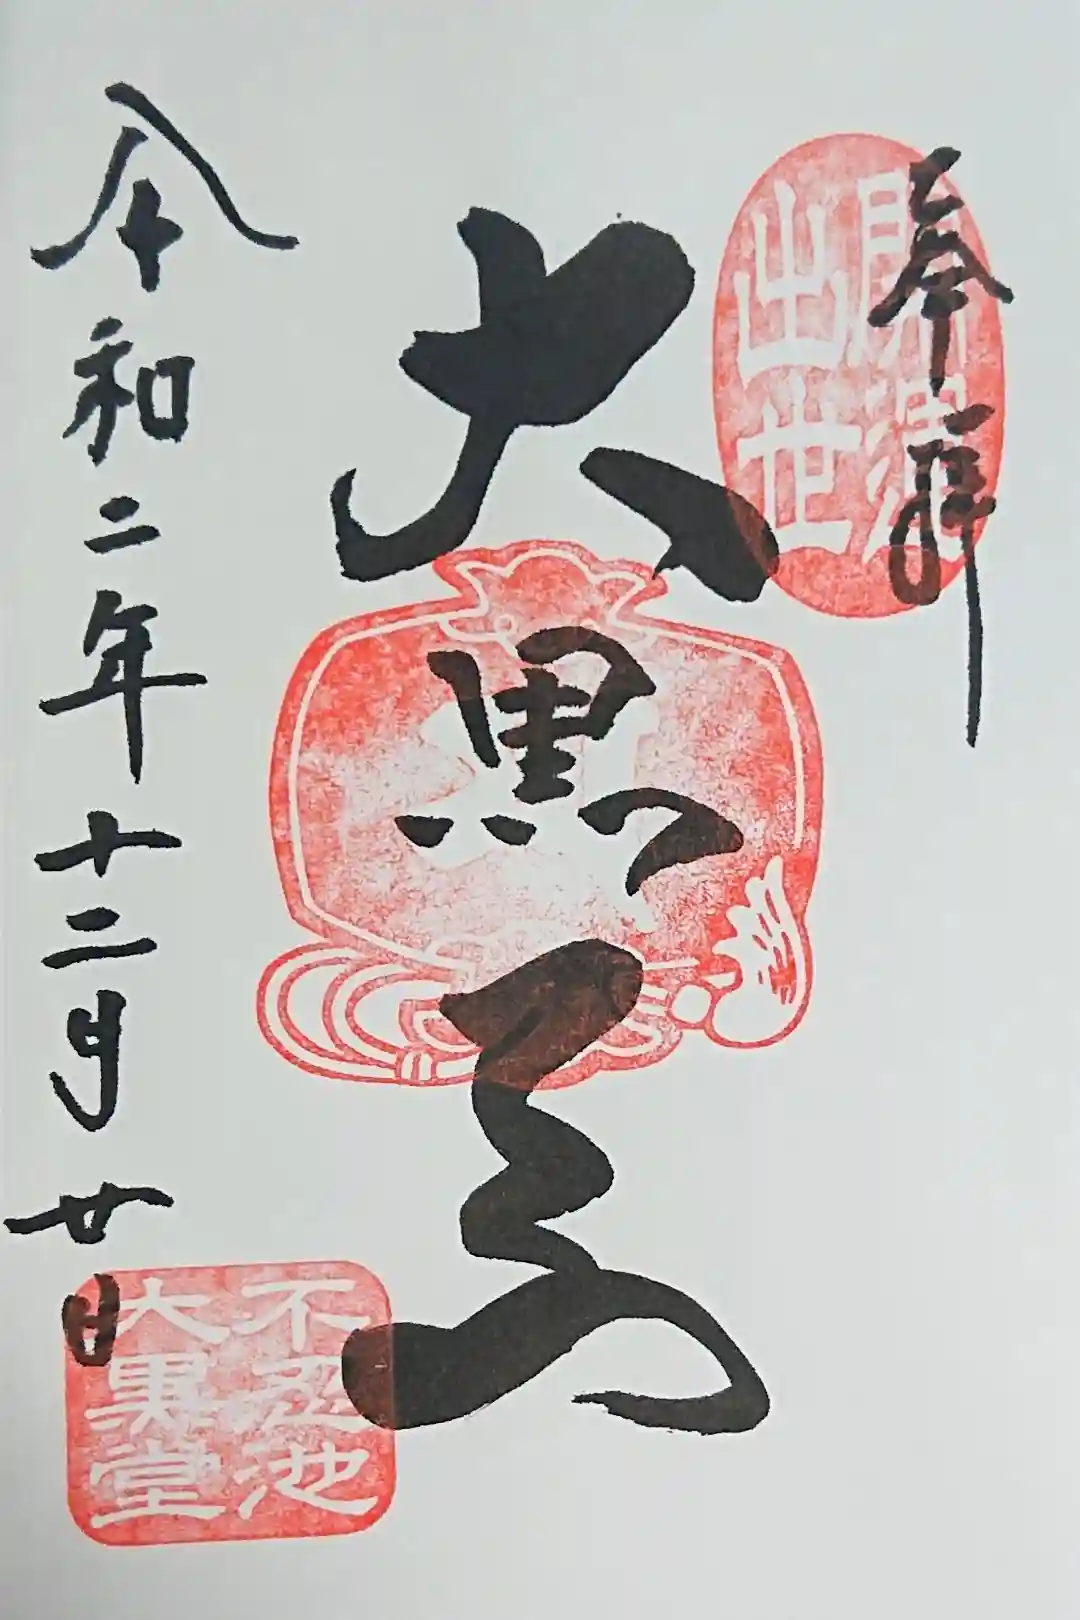 奉拝
開運
出世
大黒天
令和二年十二月廿日
不忍池
大黒堂